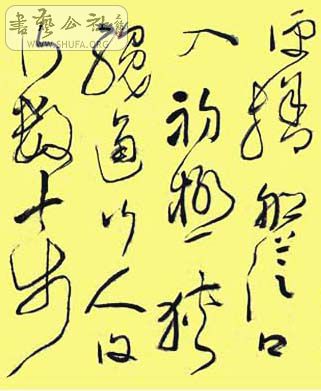 書藝公社
WWW.SHUFA.ORG
便捨船從口
入初極狹
纔通行人復
行數十步